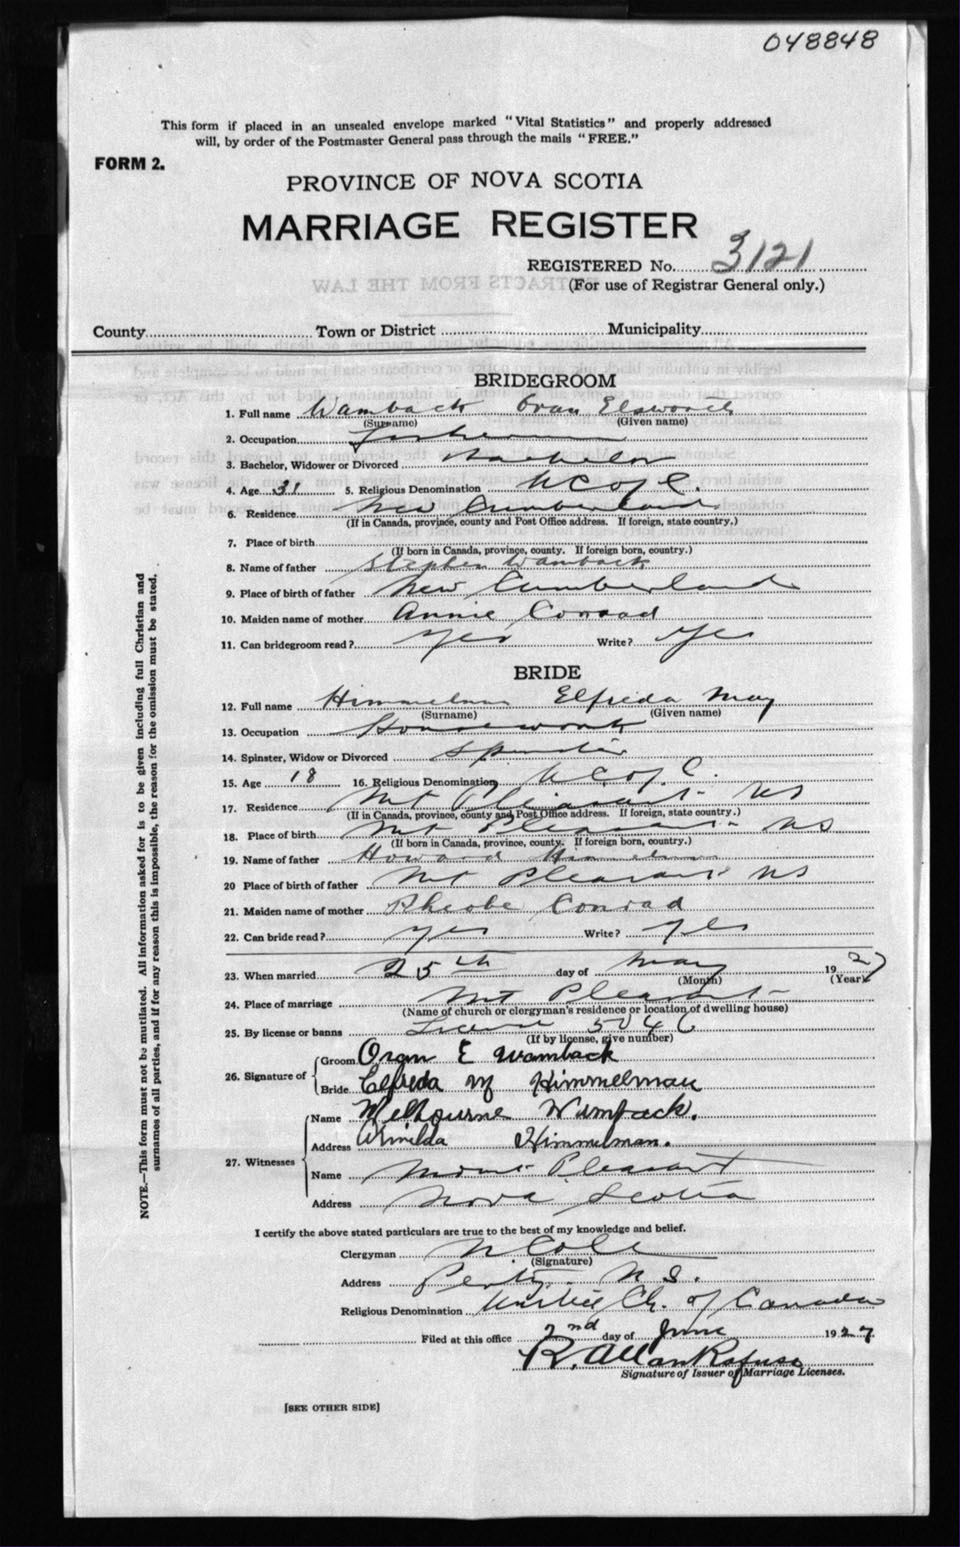 048848
This form if placed in an unsealed envelope marked "Vital Statistics" and properly addressed
will, by order of the Postmaster General pass through the mails "FREE."
FORM 2.
PROVINCE OF NOVA SCOTIA
MARRIAGE REGISTER
REGISTERED No. 3121
(For use of Registrar General only.)
County Town or District Municipality
BRIDEGROOM
1. Full name Wamback Oran Elsworth
(Surname) (Given name)
2. Occupation
3. Bachelor, Widower or Divorced Bachelor
4. Age 31 5. Religious Denomination U C of C.
6. Residence New Cumberland
(If in Canada, province, county and Post Office address. If foreign, state country.)
7. Place of birth
(If born in Canada, province, county. If foreign born, country.)
8. Name of father Stephen Wamback
9. Place of birth of father New Cumberland
10. Maiden name of mother Annie Conrad
11. Can bridegroom read? Yes Write? Yes
BRIDE
12. Full name Himmelman Elfreda May
(Surname) (Given name)
13. Occupation Housework
14. Spinster, Widow or Divorced Spinster
15. Age 18 16. Religious Denomination U C of C.
17. Residence Mt Pleasant NS
(If in Canada, province, county and Post Office address. If foreign, state country.)
18. Place of birth Mt Pleasant NS
(If born in Canada, province, county. If foreign born, country.)
19. Name of father Howard Himmelman
20 Place of birth of father Mt Pleasant NS
21. Maiden name of mother Pheobe Conrad
22. Can bride read? Yes Write? Yes
23. When married 25th day of May 1927
(Month) (Year)
24. Place of marriage Mt Pleasant
(Name of church or clergyman's residence or location of dwelling house)
25. By license or banns License 5046
(If by license, give number)
26. Signature of
Groom Oran E Wamback
Bride Elfreda M Himmelman
27. Witnesses
Name Melbourne Wamback.
Address Armilda Himmelman.
Name Mount Pleasant
Address Nova Scotia
I certify the above stated particulars are true to the best of my knowledge and belief.
Clergyman Cole
(Signature)
Address N.S.
Religious Denomination United Ch. of Canada
Filed at this office 2nd day of June 1927.
R. Allan Rafuse
Signature of Issuer of Marriage Licenses.
[SEE OTHER SIDE]
NOTE.—This form must not be mutilated. All information asked for is to be given including full Christian and
surnames of all parties, and if for any reason this is impossible, the reason for the omission must be stated.